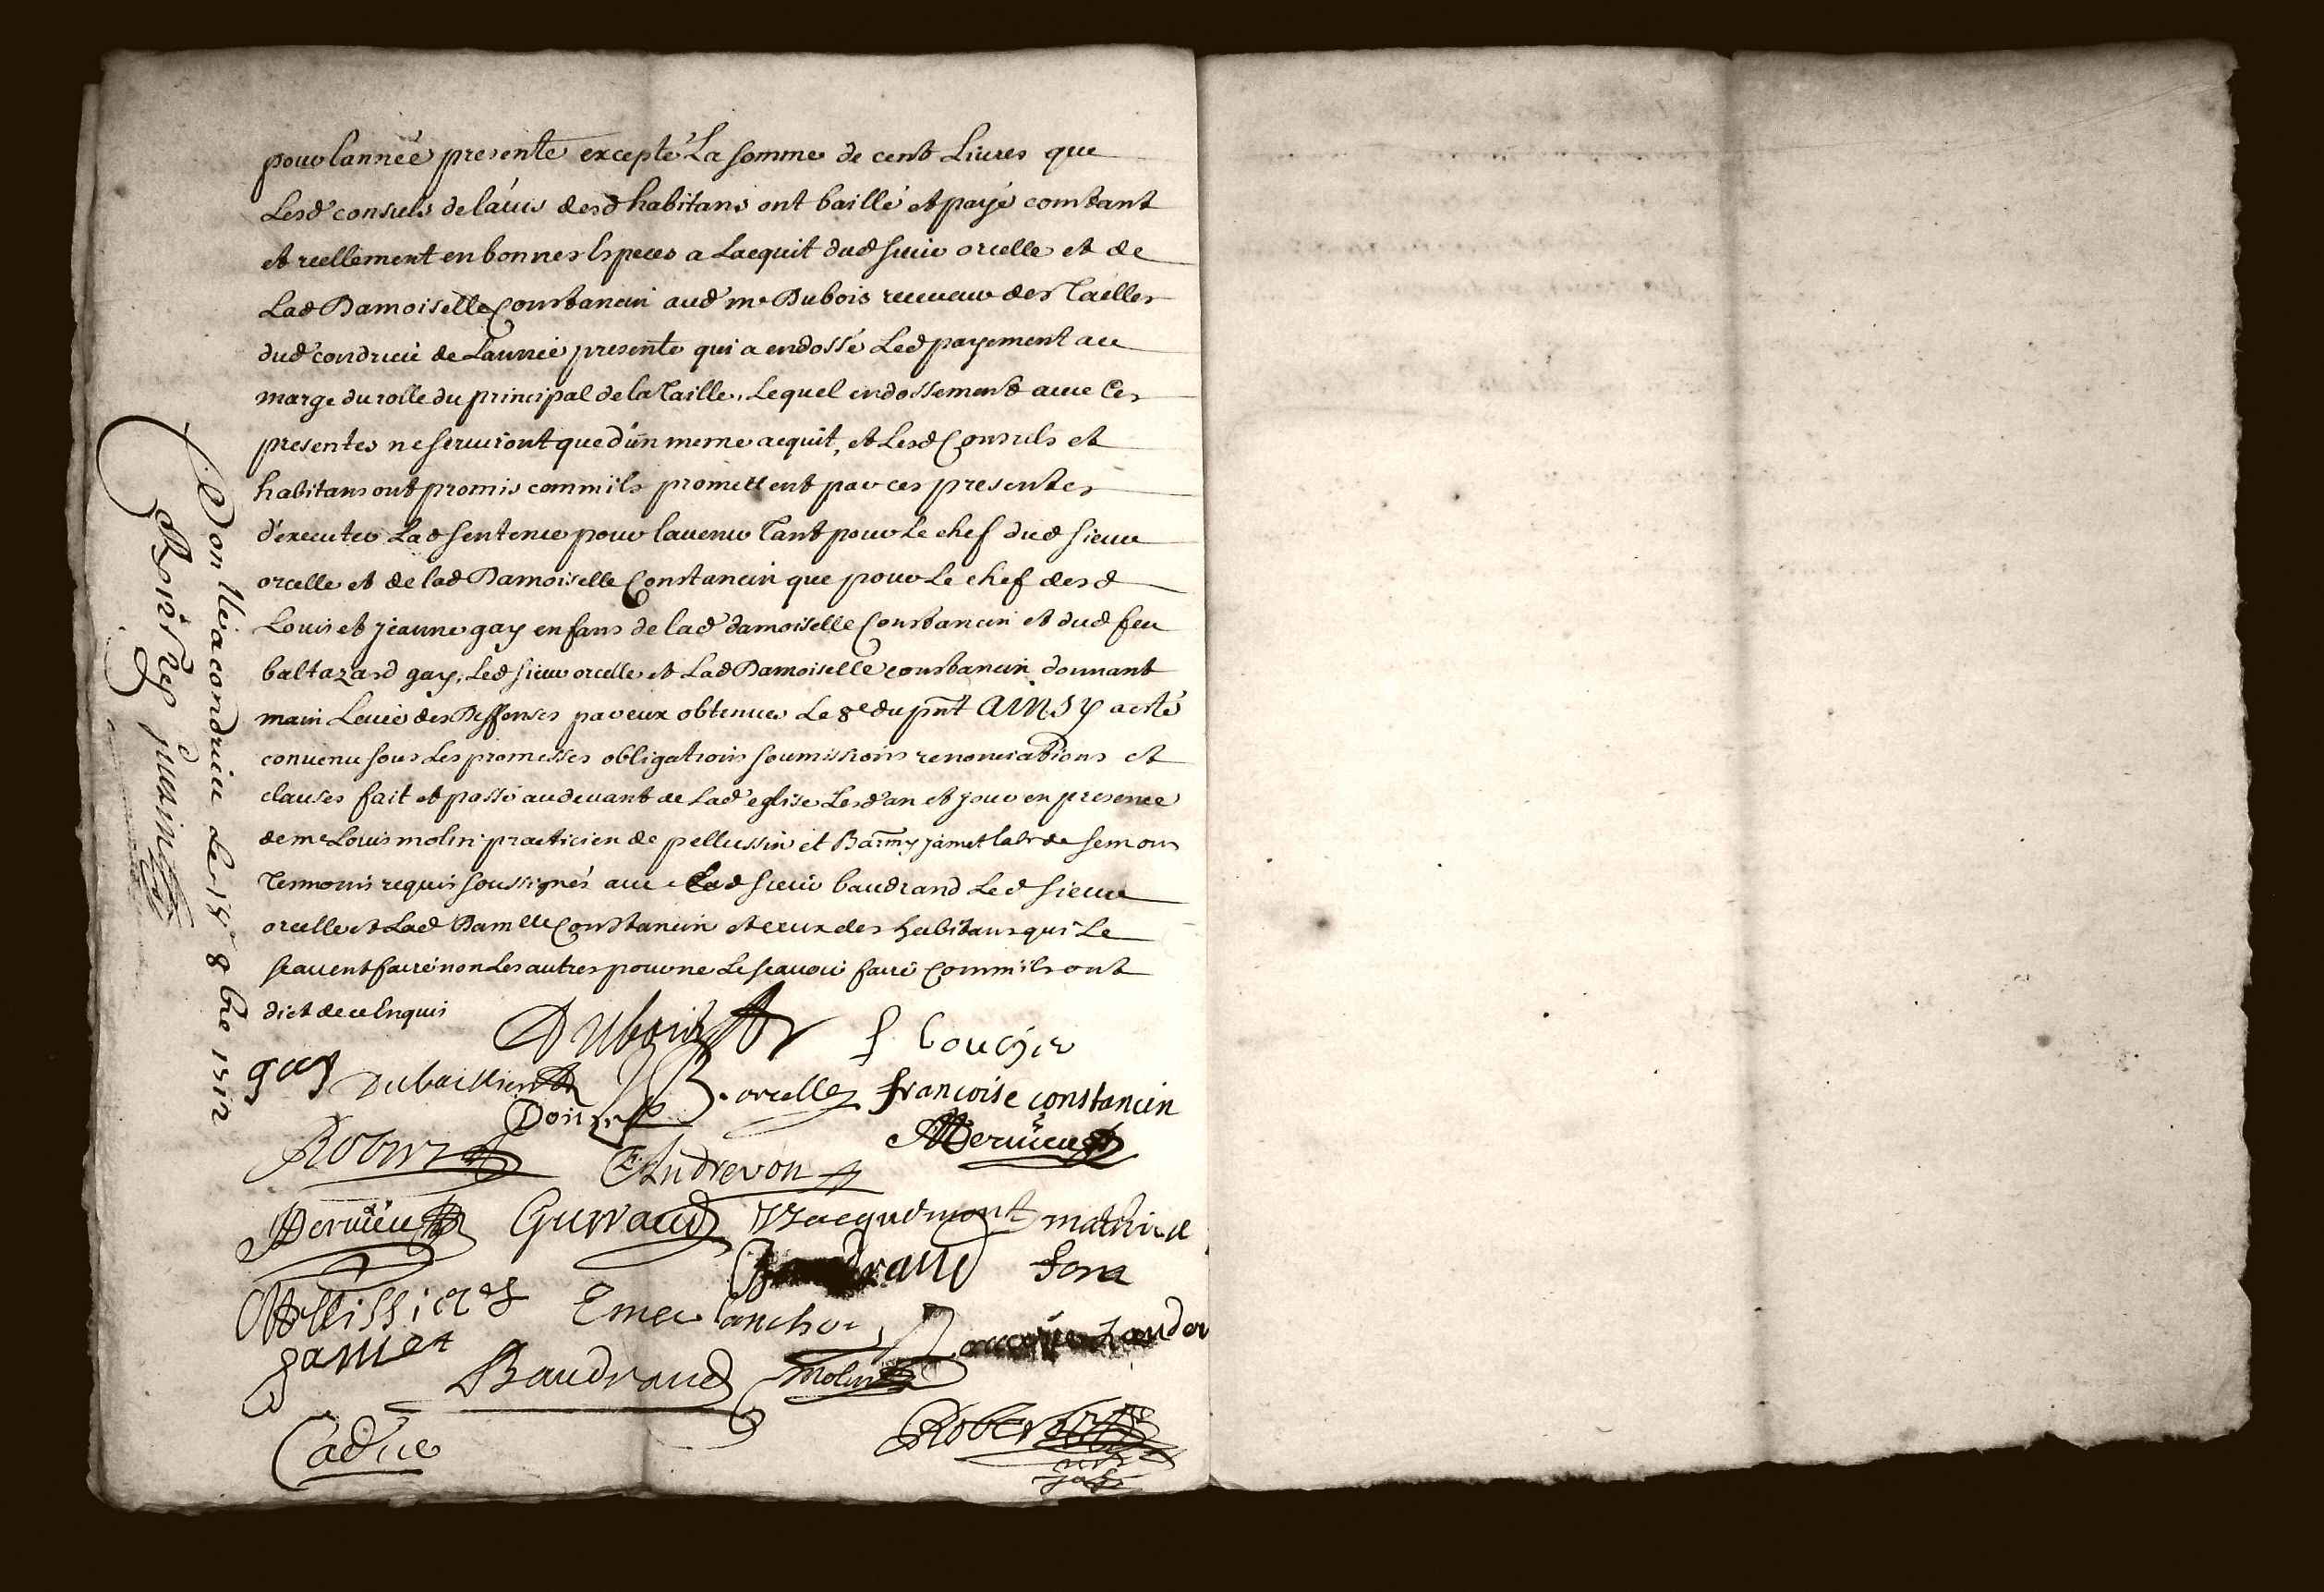 pour lannéé presente excepté La somme de cent Liures que
Lesd consuls de láuis desd habitans ont baillé et payé comtant
et reellement en bonnes Especes a Lacquit dud sieur orcelle et de
Lad Damoiselle Constancin aud me Dubois receueur des Tailles
dud condrieu de Lannée presente qui a endossé Led payement au
marge du rolle du principal de la Taille, Lequel endossement auec Ces
presentes ne seruiront que d'un meme acquit, et Lesd Consuls et
habitans ont promis comm'ils promettent par ces presentes
d'executer Lad sentence pour lauenir Tant pour Le chef dud sieur
orcelle et de lad Damoiselle Constancin que pour Le chef desd
Louis et jeanne gay enfans de lad damoiselle Constancin et dud feu
baltazard gay, Led sieur orcelle et Lad Damoiselle constancin donnant
main Leuée des Deffenses par eux obtenues Le 8e du pnt AINSY a esté
conuenu sous Les promesses obligations soumissions renonciations et
clauses fait et passé au deuant de Lad eglise Lesd an et jour en presence
de me Louis molin practicien de pellussin et Barmy jamet labr de semons
Temoins requis soussignés auec Led sieur baudrand Led sieur
orcelle et Lad Damlle Constancin et ceux des habitans qui Le
scauent faire non Les autres pour ne Le scauoir faire Comm'ils ont
dict de ce Enquis
Dubois f boucher
gay B. orcelle françoise constancin
Robin Andrevon Meruieu
Meruieu Guivaud Jacquemont mathieu
font
Pellissier
jamet
Baudrand molin
Cadier Robert
Conllé a condrieu Le 8bre 1712